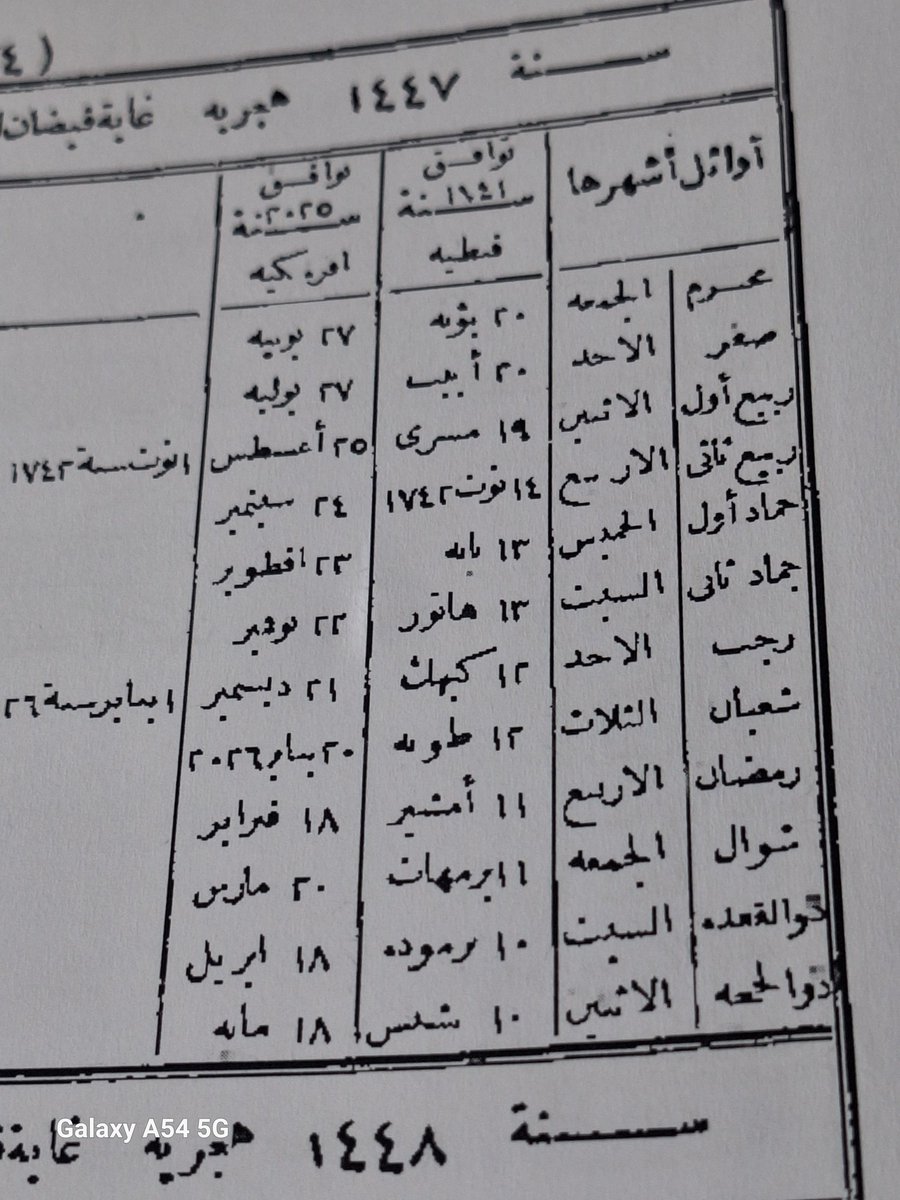 ٤ )
سنة ١٤٤٧ هجريه غاية فيضان
أوائل أشهرها | توافق سنة ١٧٤١ قبطيه | توافق سنة ٢٠٢٥ افرنكيه
محرم | الجمعه | ٢٠ بؤنه | ٢٧ يونيه
صفر | الاحد | ٢٠ أبيب | ٢٧ يوليه
ربيع أول | الاثنين | ١٩ مسرى | ٢٥ أغسطس | ١ توت سنة ١٧٤٢
ربيع ثانى | الاربع | ١٤ توت ١٧٤٢ | ٢٤ سبتمبر
جماد أول | الخميس | ١٣ بابه | ٢٣ اقطوبر
جماد ثانى | السبت | ١٣ هاتور | ٢٢ نوفمبر
رجب | الاحد | ١٢ كيهك | ٢١ ديسمبر | ١ يناير سنة ٢٦
شعبان | الثلاث | ١٢ طوبه | ٢٠ يناير ٢٠٢٦
رمضان | الاربع | ١١ أمشير | ١٨ فبراير
شوال | الجمعه | ١١ برمهات | ٢٠ مارس
ذوالقعده | السبت | ١٠ برموده | ١٨ ابريل
ذوالحجه | الاثنين | ١٠ بشنس | ١٨ مايه
سنة ١٤٤٨ هجريه غاية
Galaxy A54 5G